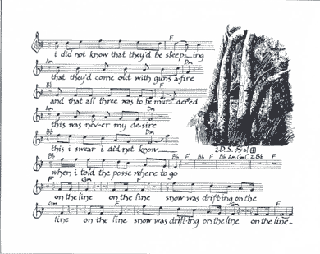 F
i did not know that they'd be sleeping
Am Dm
that they'd come out with guns afire
Bb F
and that all three was to be murdered
Am Dm
this was never my desire
Bb Dm
this i swear i did not know
Bb Bb F Bb F Bb Bb F
when i told the posse where to go
F
on the line on the line snow was drifting on the
line on the line snow was drifting on the line on the line